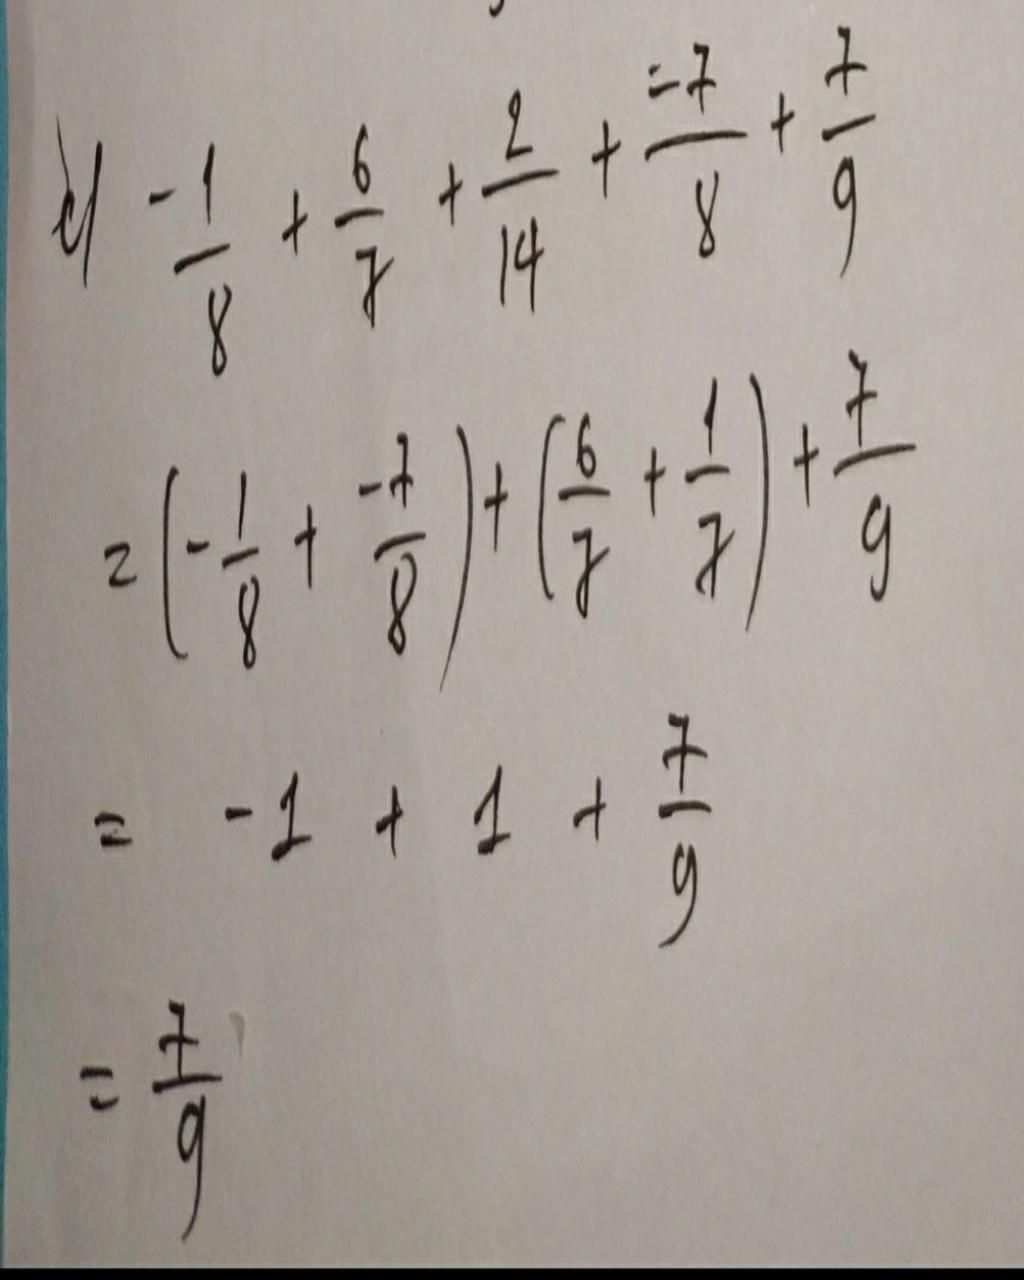 c) -1/8 + 6/7 + 2/14 + -7/8 + 7/9
= (-1/8 + -7/8) + (6/7 + 1/7) + 7/9
= -1 + 1 + 7/9
= 7/9